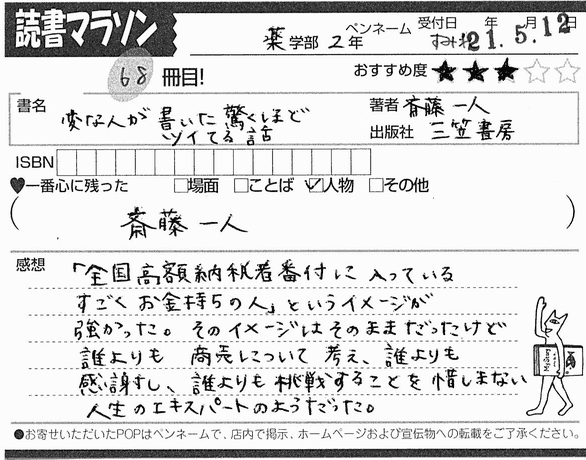 読書マラソン
薬学部 2年
ペンネーム すみれ
受付日 21年 5.月 12日
68 冊目!
おすすめ度 ★★★☆☆
書名 変な人が書いた驚くほど
ツイてる話
著者 斎藤一人
出版社 三笠書房
ISBN
♥一番心に残った □場面 □ことば ☑人物 □その他
( 斎藤一人 )
感想
「全国高額納税者番付に入っている
すごくお金持ちの人」というイメージが
強かった。そのイメージはそのままだったけど
誰よりも 商売について 考え、誰よりも
感謝すし、誰よりも挑戦することを惜しまない
人生のエキスパートのようだった。
●お寄せいただいたPOPはペンネームで、店内で掲示、ホームページおよび宣伝物への転載をご了承ください。